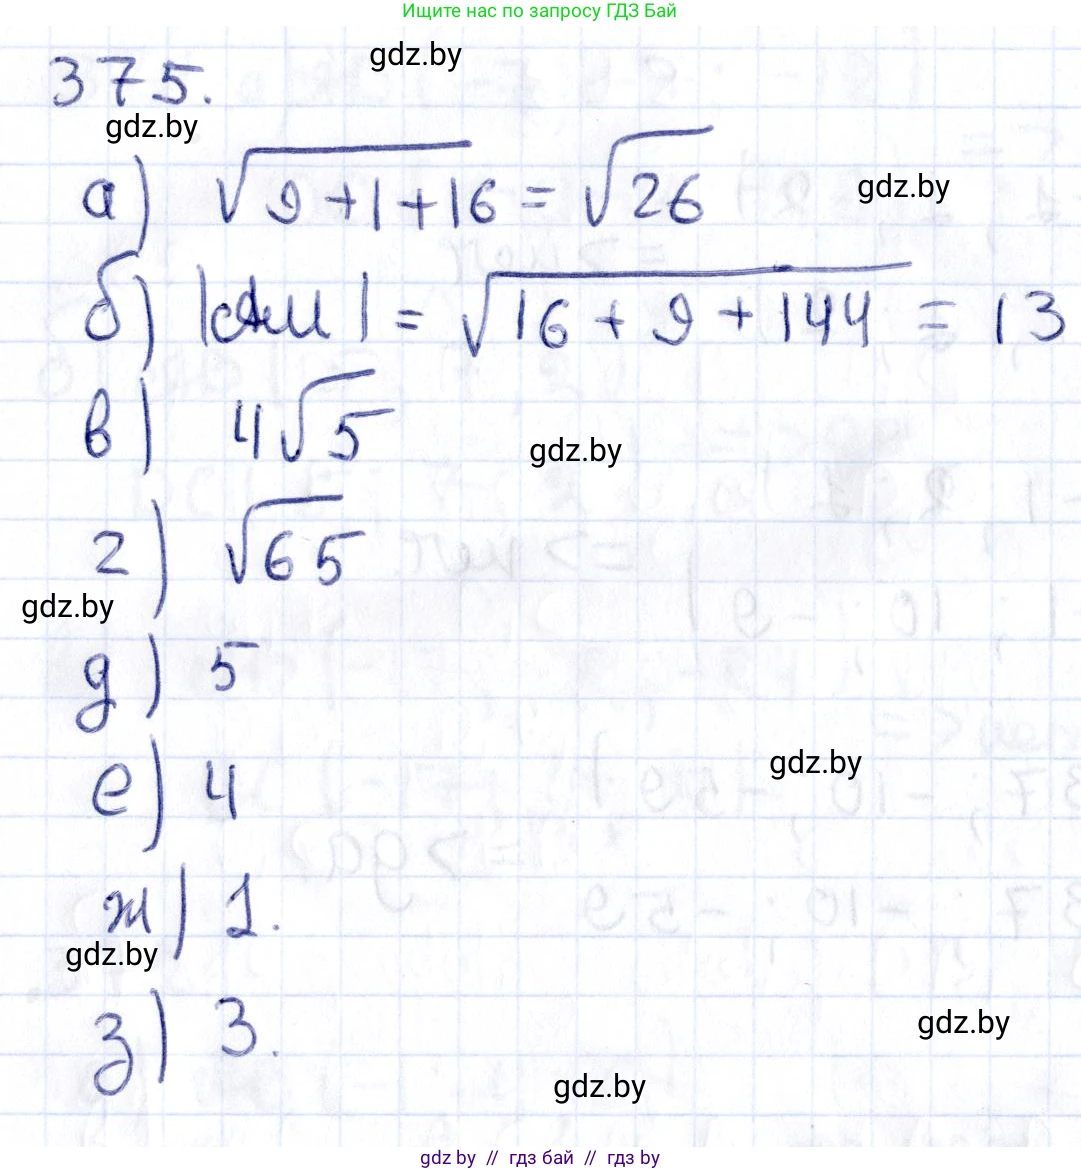 Ищите нас по запросу ГДЗ Бай
gdz.by
375.
gdz.by
а) √9+1+16 = √26
gdz.by
б) | = √16 + 9 + 144 = 13
в) 4√5
gdz.by
г) √65
gdz.by
д) 5
gdz.by
е) 4
ж) 1.
gdz.by
з) 3.
gdz.by
gdz.by
gdz by // гдз бай // gdz by